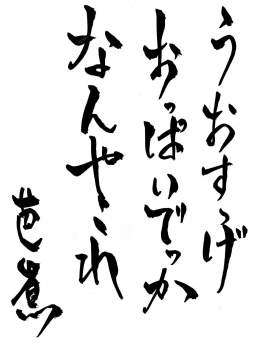 うおすゝげ
おっぱいでっか
なんやこれ
芭蕉